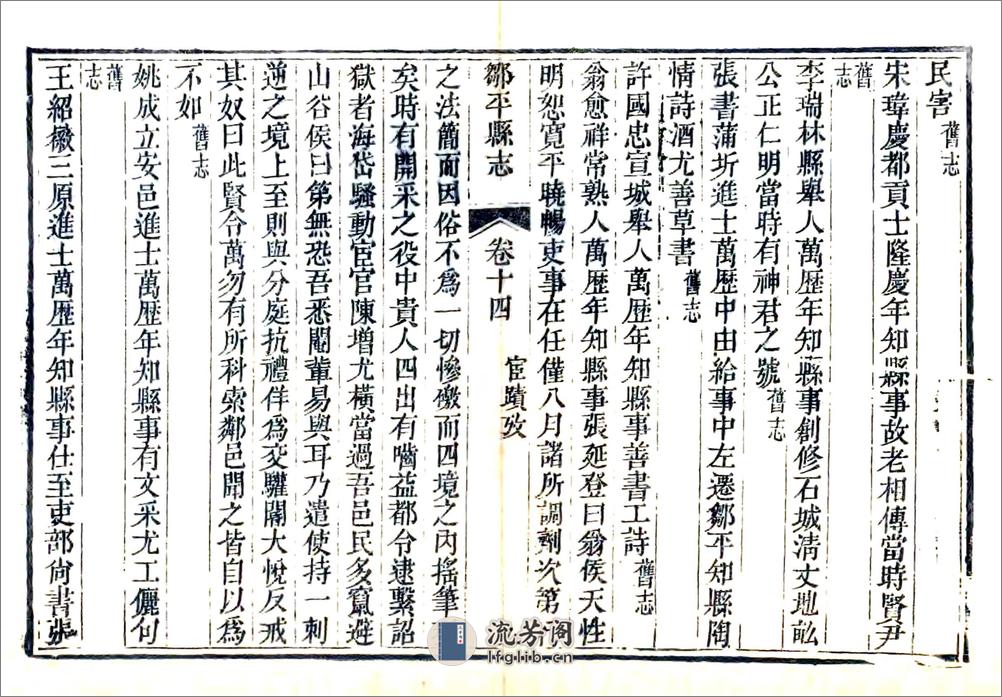 民害舊志
宋瑋慶都貢士隆慶年知縣事故老相傳當時賢尹
舊志
李瑞林縣舉人萬歷年知縣事創修石城清丈地畝
公正仁明當時有神君之號舊志
張書蒲圻進士萬歷中由給事中左遷鄒平知縣陶
情詩酒尤善草書舊志
許國忠宣城舉人萬歷年知縣事善書工詩舊志
翁愈祥常熟人萬歷年知縣事張延登曰翁侯天性
明恕寬平曉暢吏事在任僅八月諸所調劑次第
鄒平縣志 卷十四 宦蹟攷
之法簡而因俗不爲一切慘礉而四境之內搖筆
矣時有開采之役中貴人四出有嚙益都令逮繫詔
獄者海岱騷動宦官陳增尤橫當過吾邑民多竄避
山谷侯曰第無恐吾悉閹輩易與耳乃遣使持一刺
逆之境上至則與分庭抗禮佯爲交驩閹大悅反戒
其奴曰此賢令萬勿有所科索鄰邑聞之皆自以爲
不如舊志
姚成立安邑進士萬歷年知縣事有文采尤工儷句
舊志
王紹徽三原進士萬歷年知縣事仕至吏部尚書張
流芳阁
lfglib.cn